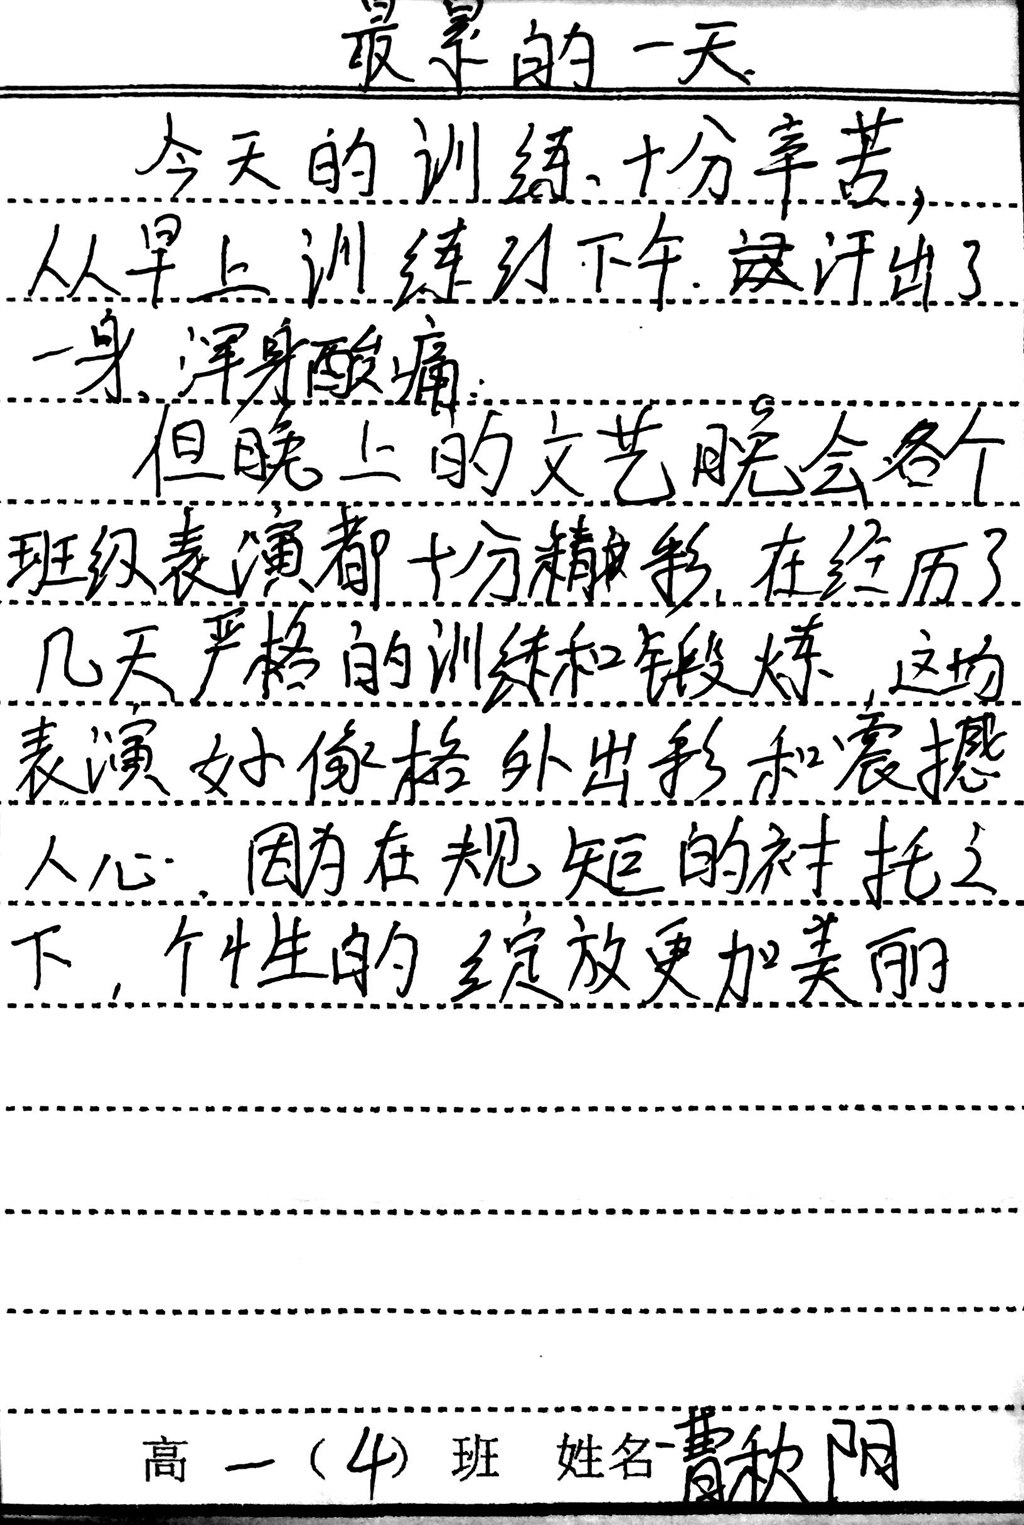 最累的一天
今天的训练、十分辛苦，
从早上训练到下午.汗出了
一身、浑身酸痛.
但晚上的文艺晚会各个
班级表演都十分精彩.在经历了
几天严格的训练和锻炼,这场
表演好像格外出彩和震撼
人心.因为在规矩的衬托之
下,个性的绽放更加美丽
高一(4)班 姓名曹秋阳